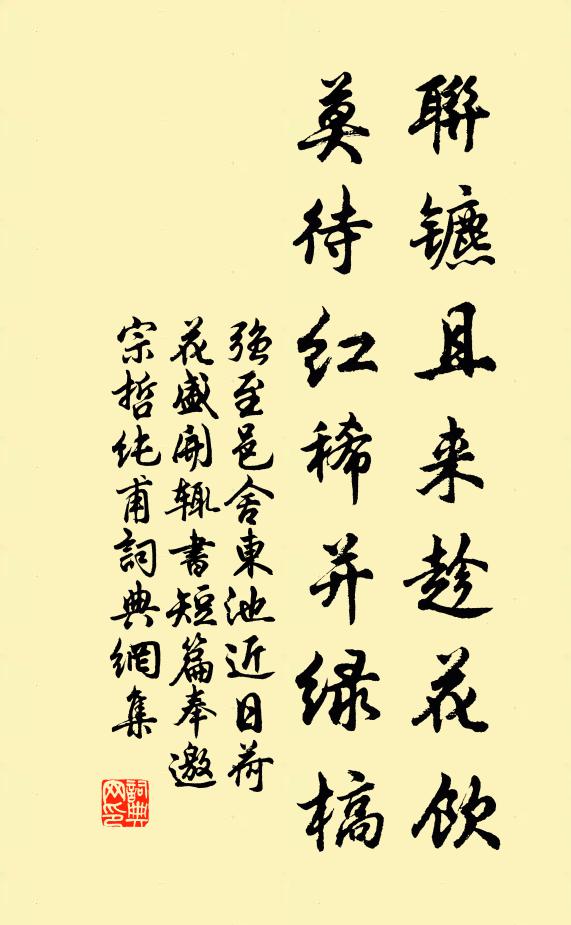 聯镳且来趁花飲
莫待紅稀并緑槁
强至邑舍東池近日荷
花盛開輒書短篇奉邀
宗哲纯甫詞典網集
詞典网印